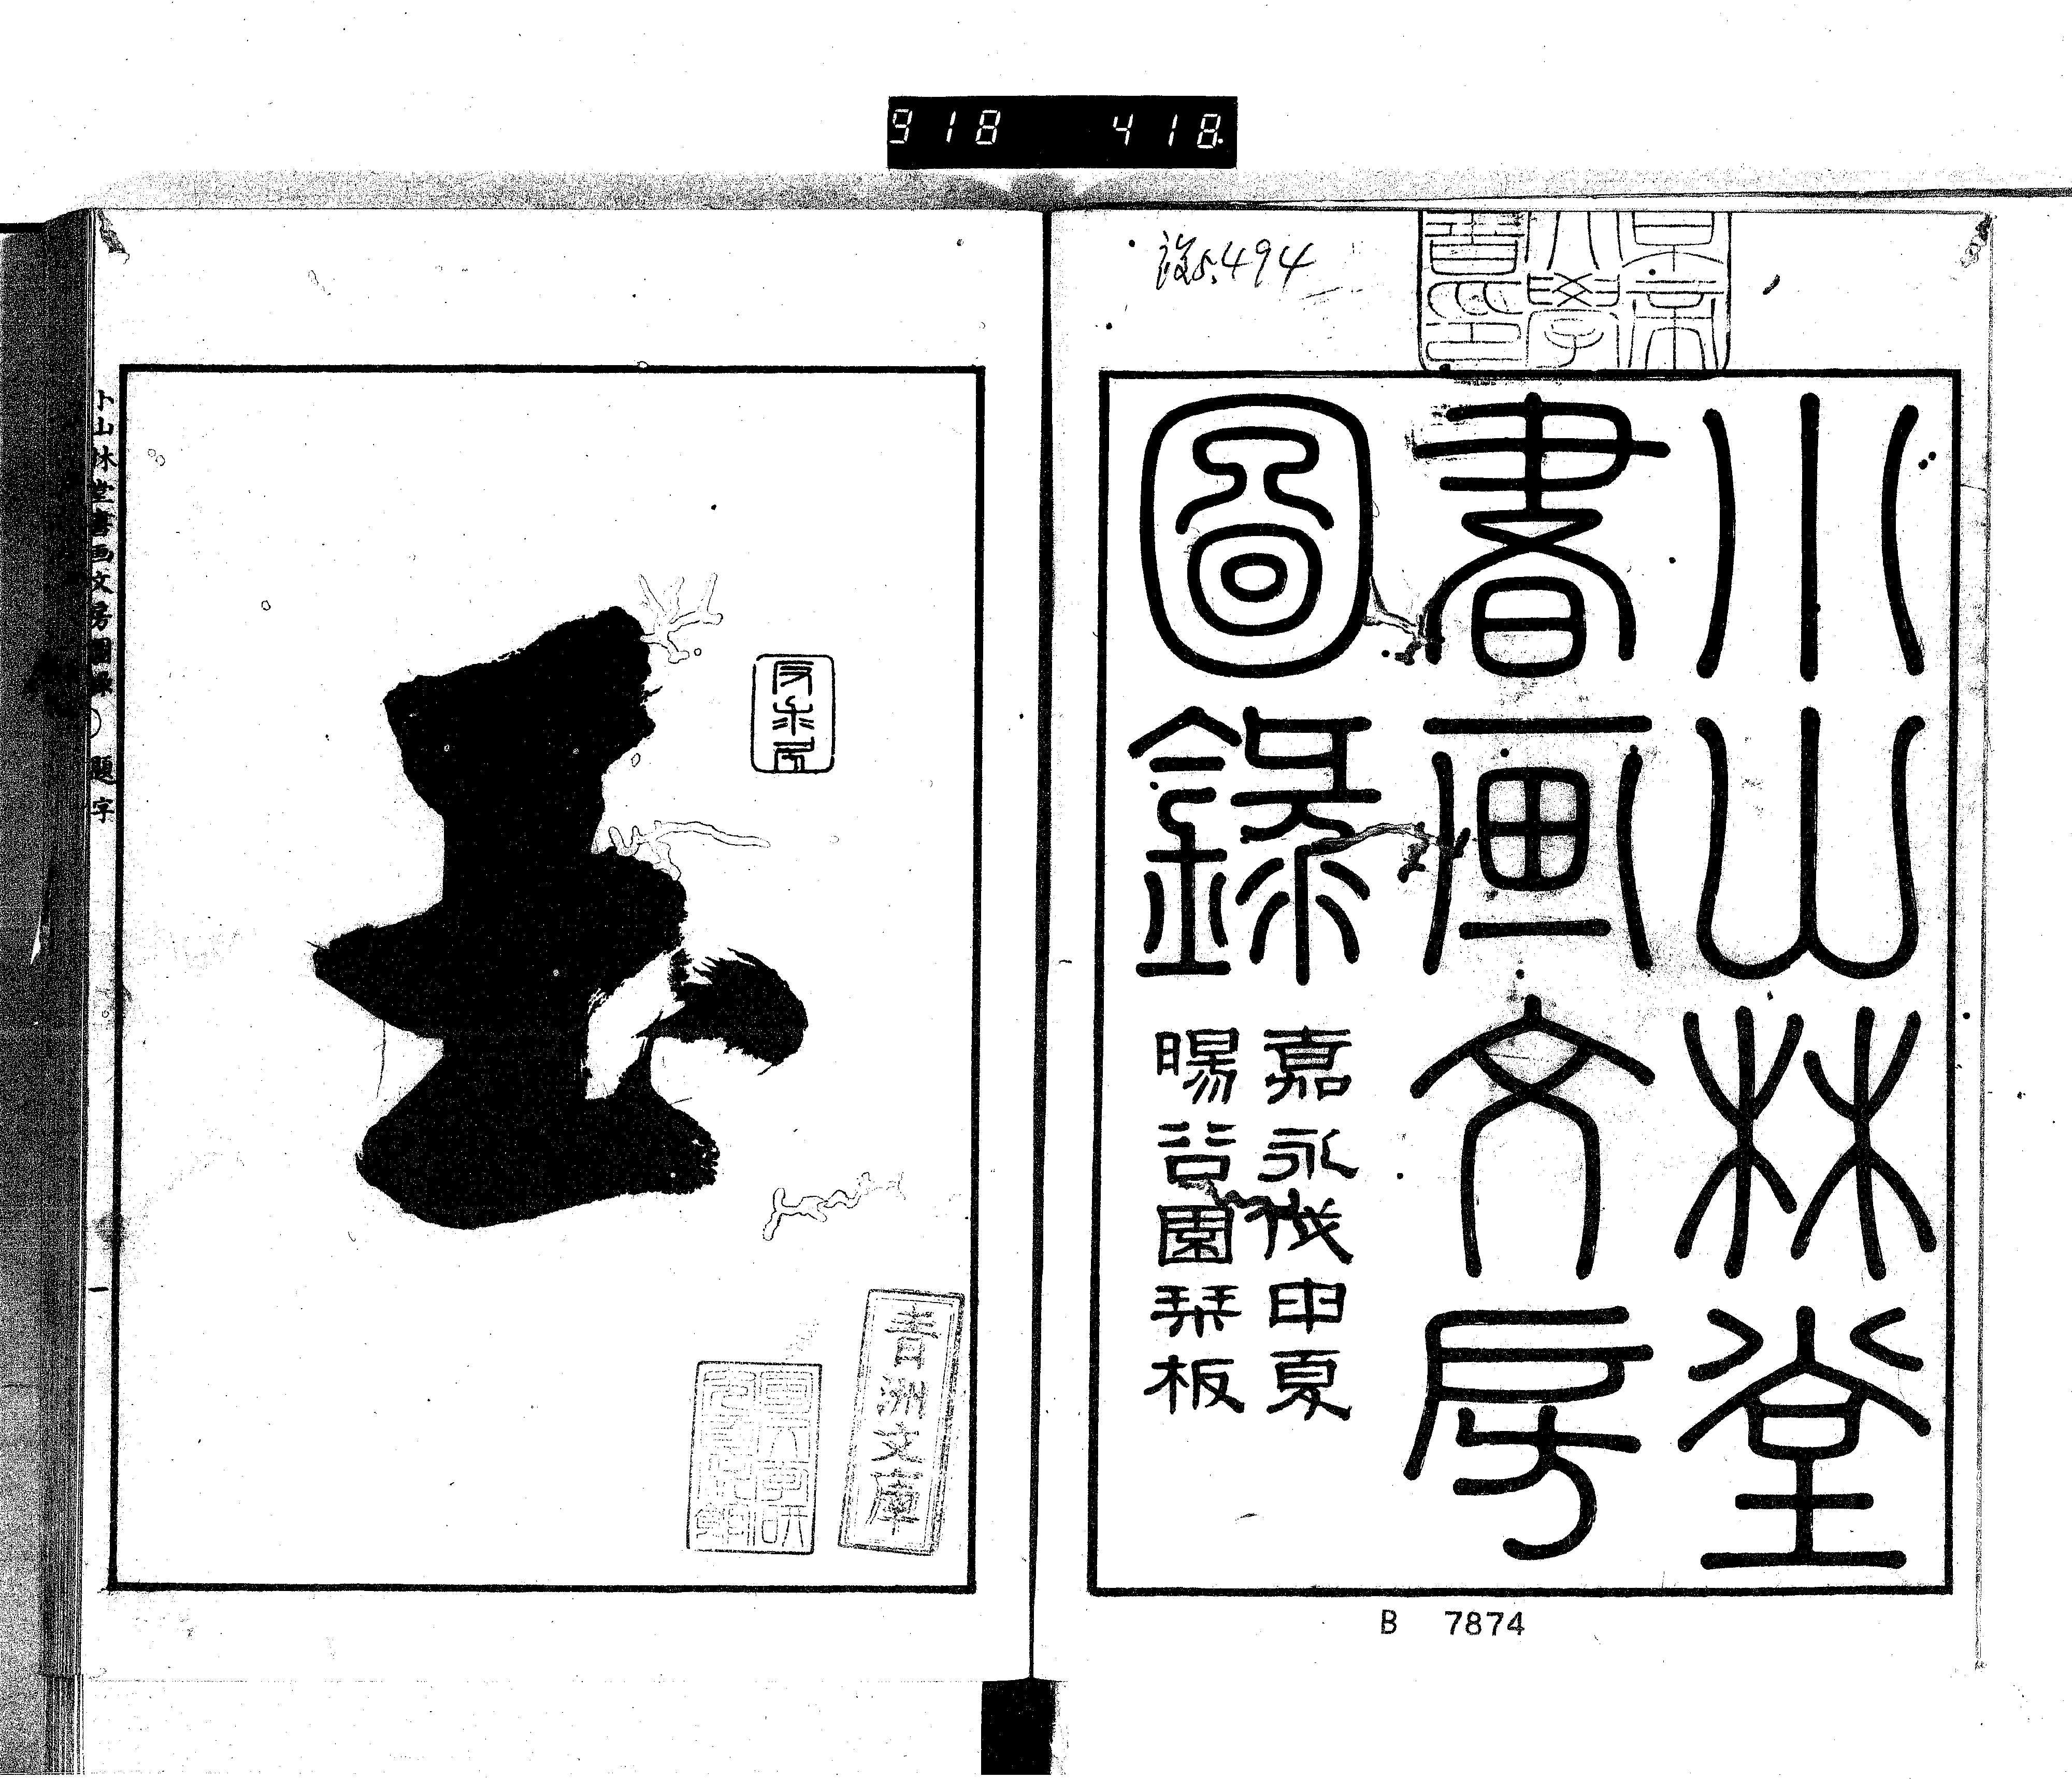 918 418
494
小山林堂
書画文房
圖錄
嘉永戊申夏
暘谷園栞板
B 7874
青洲文庫
小山林堂書画文房圖錄 題字 一